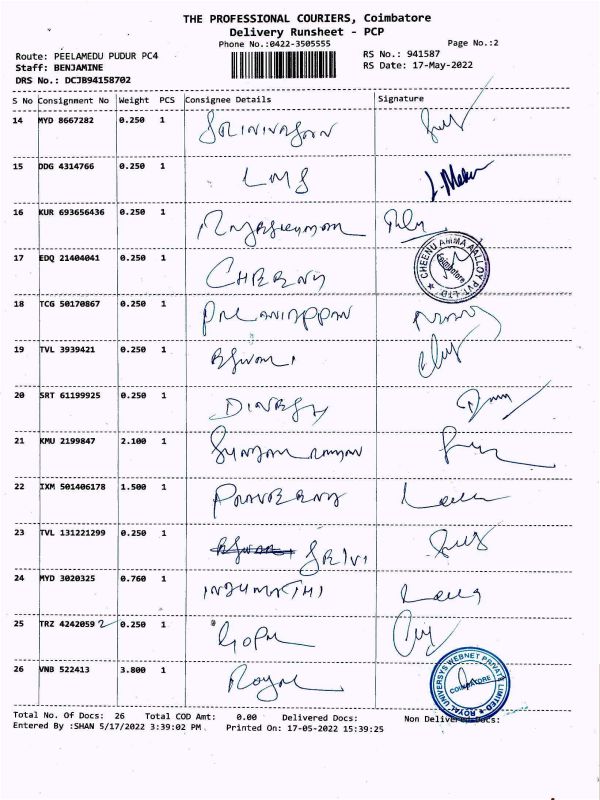 THE PROFESSIONAL COURIERS, Coimbatore
Delivery Runsheet - PCP
Phone No.:0422-3505555 Page No.:2
Route: PEELAMEDU PUDUR PC4 RS No.: 941587
Staff: BENJAMINE RS Date: 17-May-2022
DRS No.: DCJB94158702
S No Consignment No Weight PCS Consignee Details Signature
14 MYD 8667282 0.250 1 SRINIVASAN
15 DDG 4314766 0.250 1 LMS
16 KUR 693656436 0.250 1
17 EDQ 21404041 0.250 1 CHEENU
CHEENU AMMA ALLOY PVT-LTD Coimbatore
18 TCG 50170867 0.250 1 PALANIAPPAN
19 TVL 3939421 0.250 1
20 SRT 61199925 0.250 1 DINESH
21 KMU 2199847 2.100 1
22 IXM 501406178 1.500 1 PRAVEENA
23 TVL 131221299 0.250 1 SRIVI
24 MYD 3020325 0.760 1 INDUMATHI
25 TRZ 4242059 2 0.250 1 GOPAL
26 VNB 522413 3.800 1 Royal
ROYAL UNIVERSYS WEBNET PRIVATE LIMITED COIMBATORE
Total No. Of Docs: 26 Total COD Amt: 0.00 Delivered Docs: Non Delivered Docs:
Entered By :SHAN 5/17/2022 3:39:02 PM Printed On: 17-05-2022 15:39:25